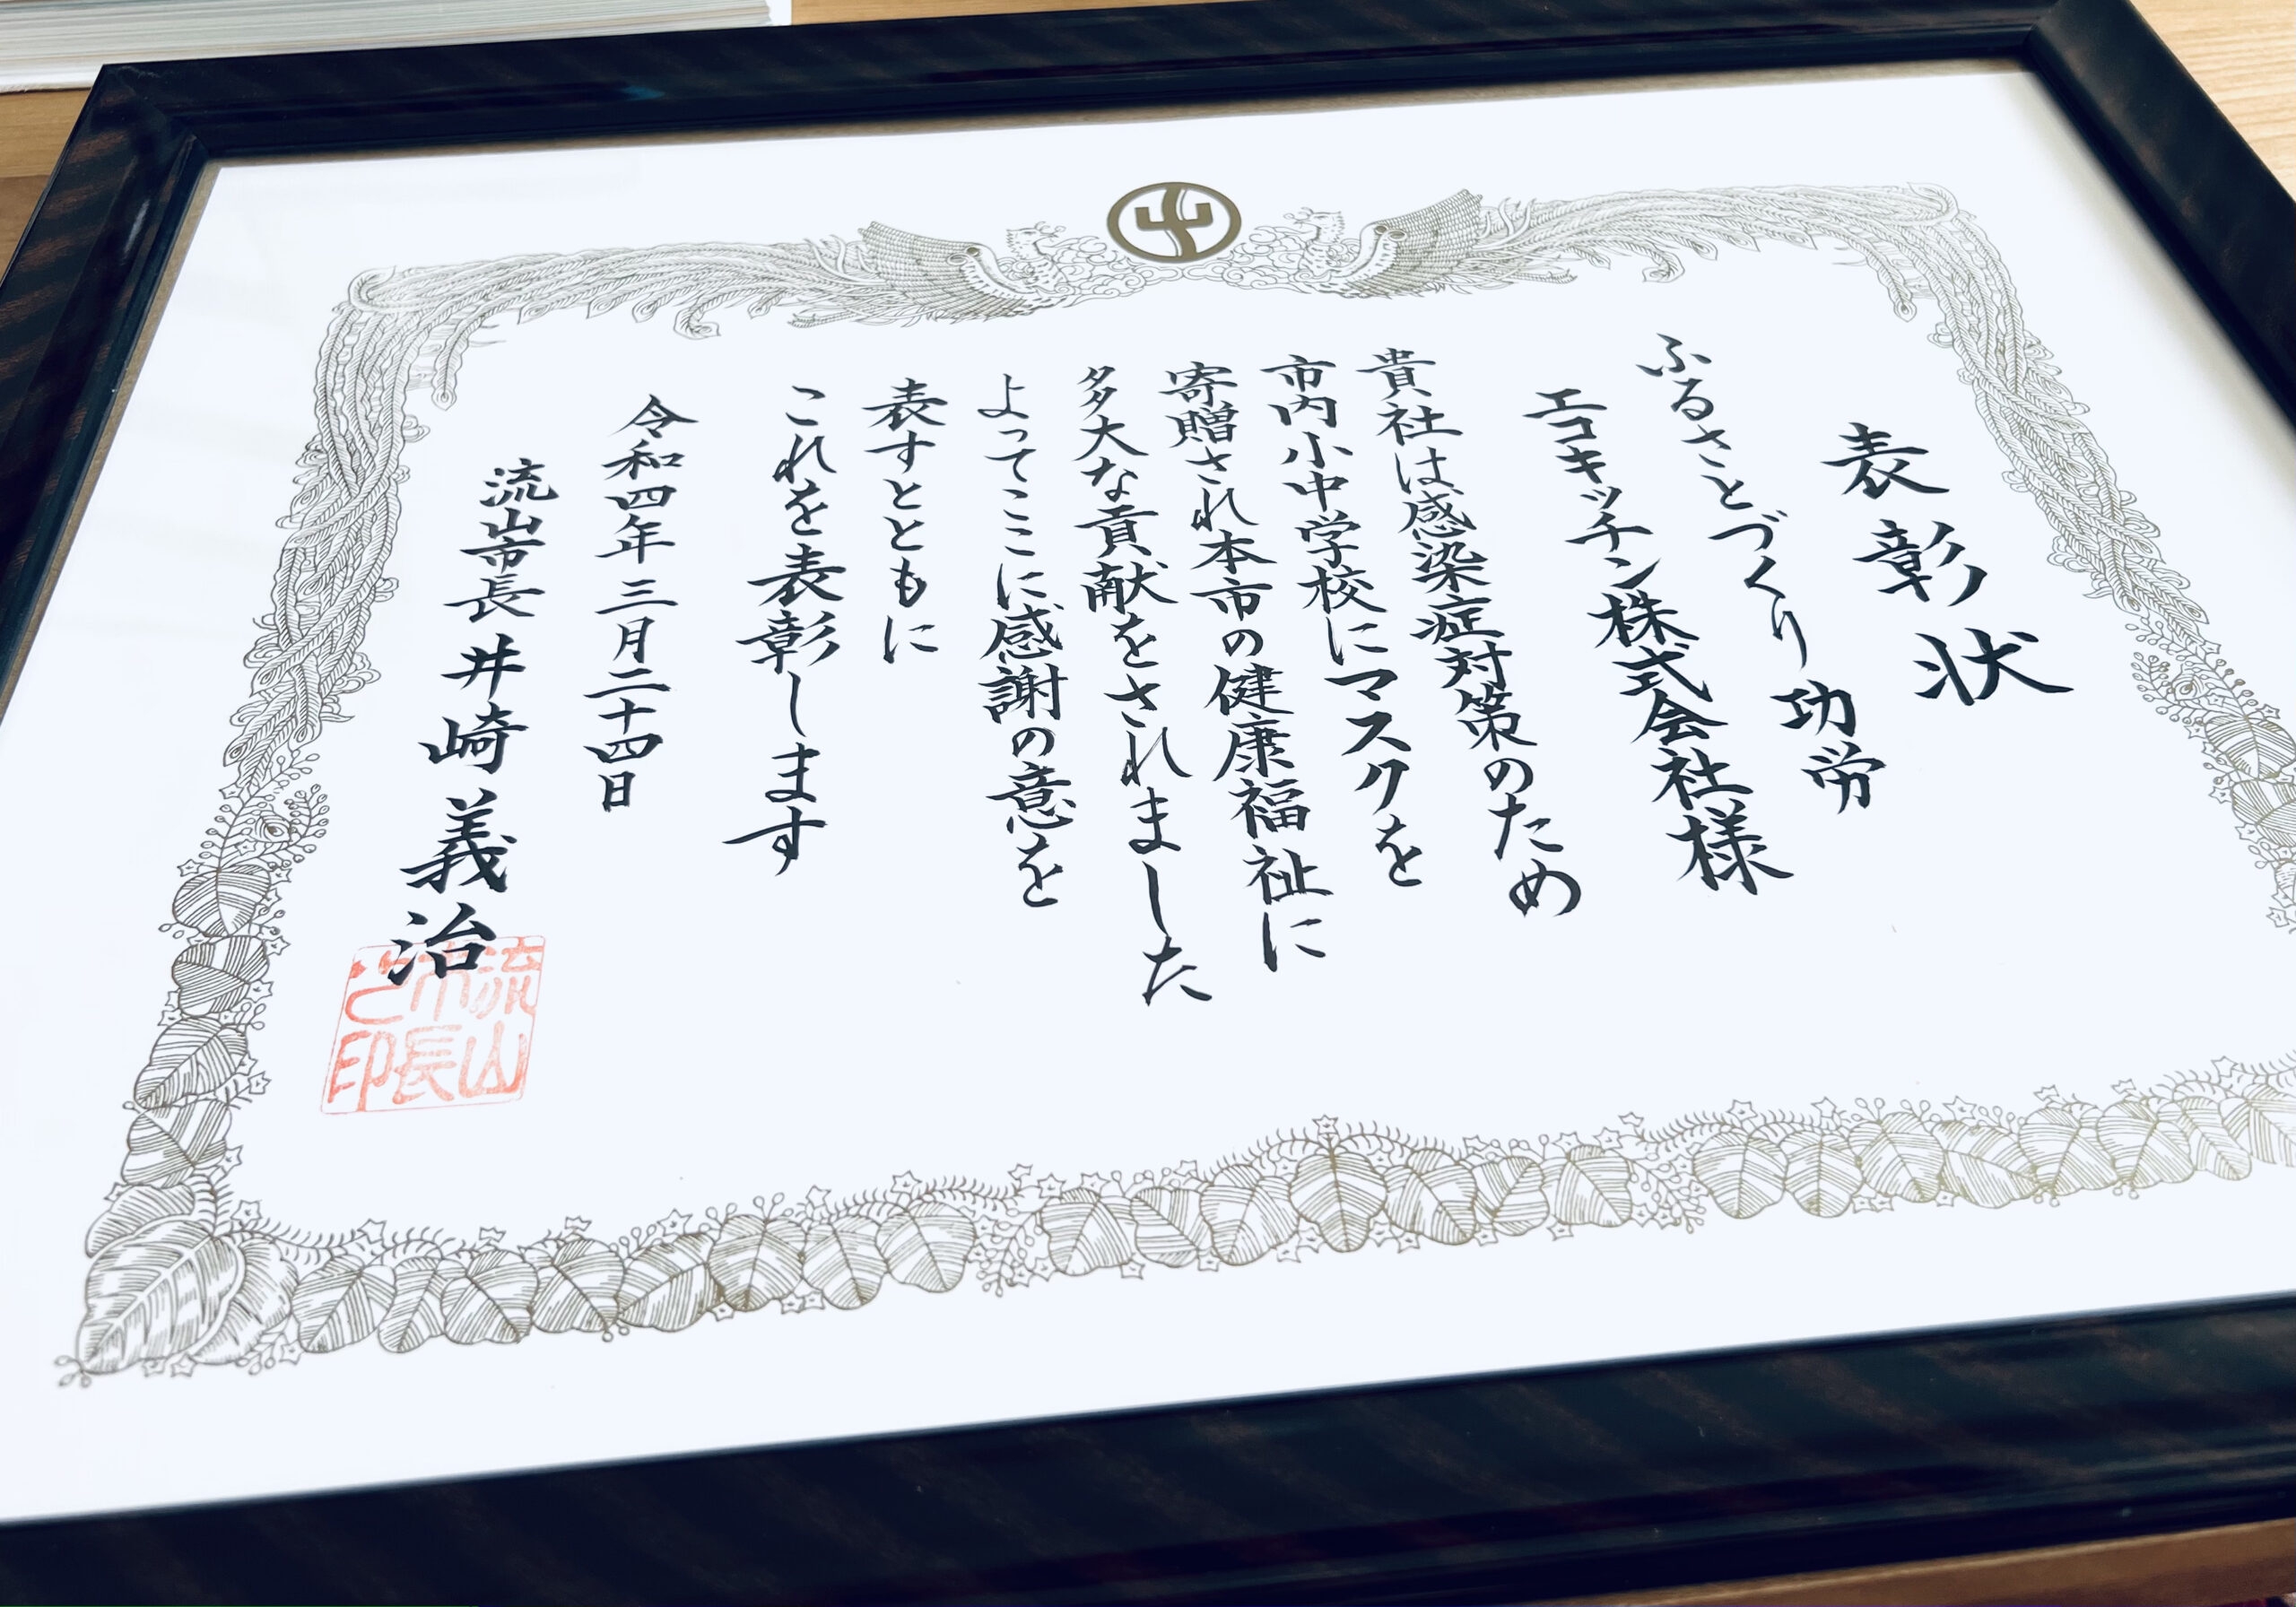 表彰状
ふるさとづくり功労
エコキッチン株式会社様
貴社は感染症対策のため
市内小中学校にマスクを
寄贈され本市の健康福祉に
多大な貢献をされました
よってここに感謝の意を
表すとともに
これを表彰します
令和四年三月二十四日
流山市長 井崎義治
流山
市長
之印